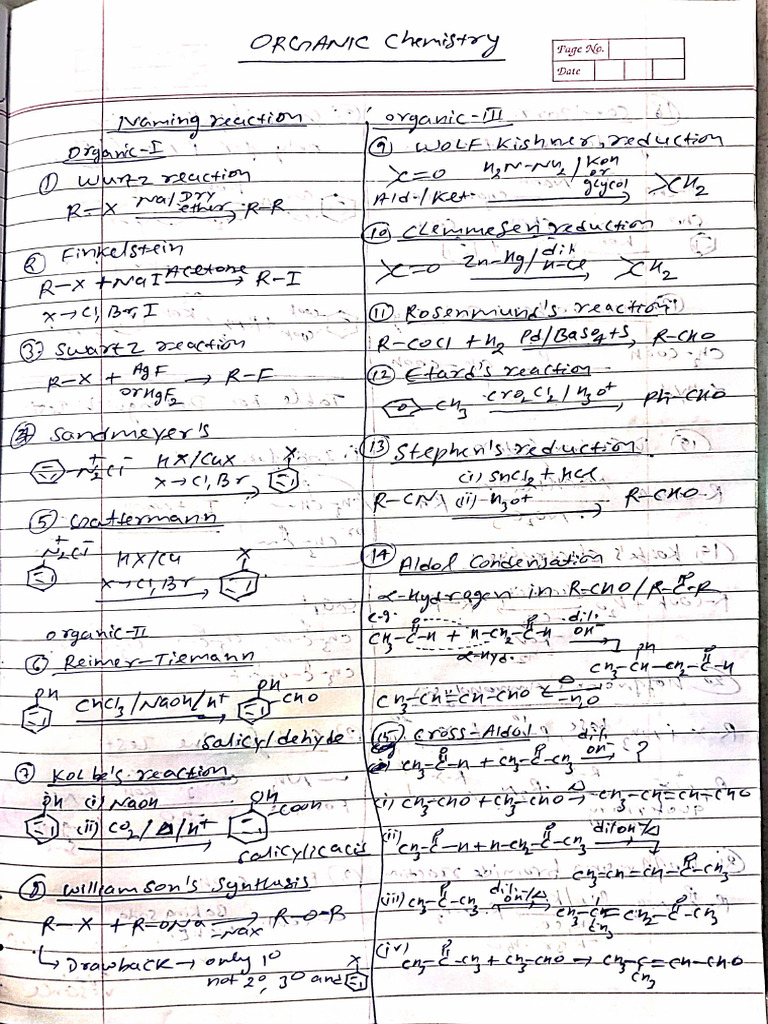 ORGANIC Chemistry
Page No.
Date
Naming reaction
Organic-I
① Wurtz reaction
R-X Na/Dry ether → R-R
② Finkelstein
R-X + NaI Acetone → R-I
X→Cl, Br, I
③ Swartz reaction
R-X + AgF or HgF2 → R-F
④ Sandmeyer's
N2+Cl- HX/CuX → X
X→Cl, Br
⑤ Gattermann
N2+Cl- HX/Cu → X
X→Cl, Br
organic-II
⑥ Reimer-Tiemann
OH CHCl3/NaOH/H+ → OH CHO
Salicyldehyde
⑦ Kolbe's reaction
OH (i) NaOH
(ii) CO2/Δ/H+ → OH COOH
Salicylicacid
⑧ Williamson's Synthesis
R-X + R-ONa -NaX → R-O-R
↳ Drawback → only 1°
not 2°, 3° and X
organic-III
⑨ WOLF Kishner reduction
>C=O H2N-NH2/KOH or glycol → >CH2
Ald./Ket.
⑩ Clemmesen reduction
>C=O Zn-Hg/dil. H-Cl → >CH2
⑪ Rosenmund's reaction
R-COCl + H2 Pd/BaSO4+S → R-CHO
⑫ Etard's reaction
CH3 CrO2Cl2/H3O+ → Ph-CHO
⑬ Stephen's reduction
(i) SnCl2 + HCl
R-CN (ii) H3O+ → R-CHO
⑭ Aldol Condensation
α-Hydrogen in R-CHO/R-C(=O)-R
e.g.
CH3-C(=O)-H + H-CH2-C(=O)-H dil. OH- →
α-Hyd.
OH
CH3-CH-CH2-C(=O)-H
CH3-CH=CH-CHO ← Δ -H2O
⑮ Cross-Aldol
CH3-C(=O)-H + CH3-C(=O)-CH3 dil. OH- → ?
(i) CH3-CHO + CH3-CHO Δ → CH3-CH=CH-CHO
(ii) CH3-C(=O)-H + H-CH2-C(=O)-CH3 dil OH-/Δ →
CH3-CH=CH-C(=O)-CH3
(iii) CH3-C(=O)-CH3 dil. OH-/Δ → CH3-C=CH2-C(=O)-CH3
CH3
(iv) CH3-C(=O)-CH3 + CH3-CHO → CH3-C=CH-CHO
CH3